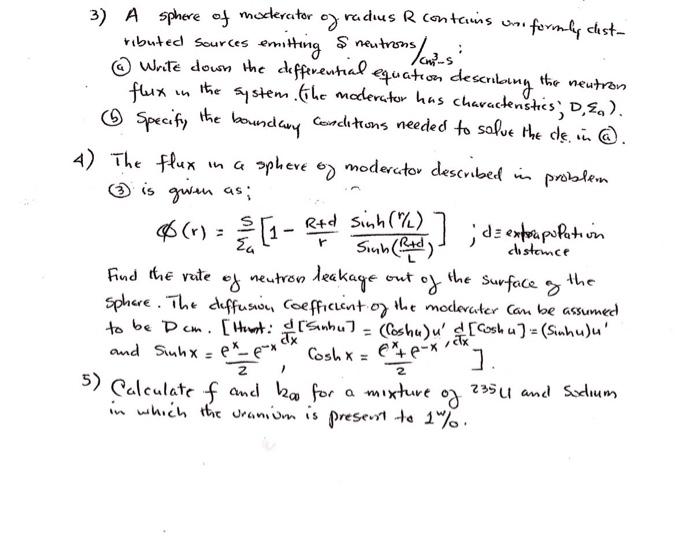 3) A sphere of moderator of radius R contains uniformly dist-
ributed sources emitting S neutrons/cm³-s:
ⓐ Write down the differential equation describing the neutron
flux in the system. (The moderator has characteristics; D, Σₐ).
ⓑ Specify the boundary conditions needed to solve the de. in ⓐ.
4) The flux in a sphere of moderator described in problem
③ is given as;
ϕ(r) = S/Σₐ [1 - (R+d)/r sinh(r/L)/Sinh((R+d)/L)] ; d≡extrapolation distance
Find the rate of neutron leakage out of the surface of the
sphere. The diffusion coefficient of the moderator can be assumed
to be D cm. [Hint: d/dx[Sinhu] = (Coshu)u' , d/dx[Coshu] = (Sinhu)u'
and Sinhx = (eˣ-e⁻ˣ)/2 , Cosh x = (eˣ+e⁻ˣ)/2 ].
5) Calculate f and k∞ for a mixture of ²³⁵U and Sodium
in which the uranium is present to 1ʷ/₀.